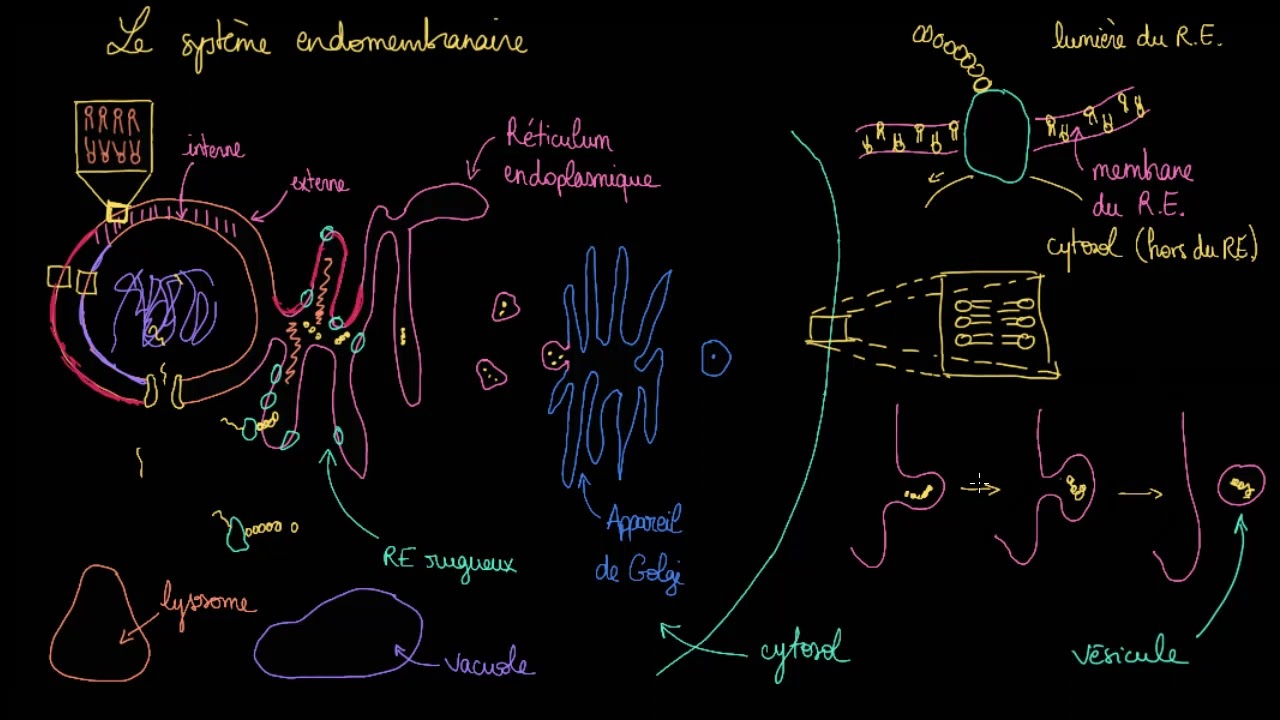 Le système endomembranaire
lumière du R.E.
interne
externe
Réticulum
endoplasmique
membrane
du R.E.
cytosol (hors du R.E.)
Appareil
de Golgi
RE rugueux
lyssome
vacuole
cytosol
vésicule